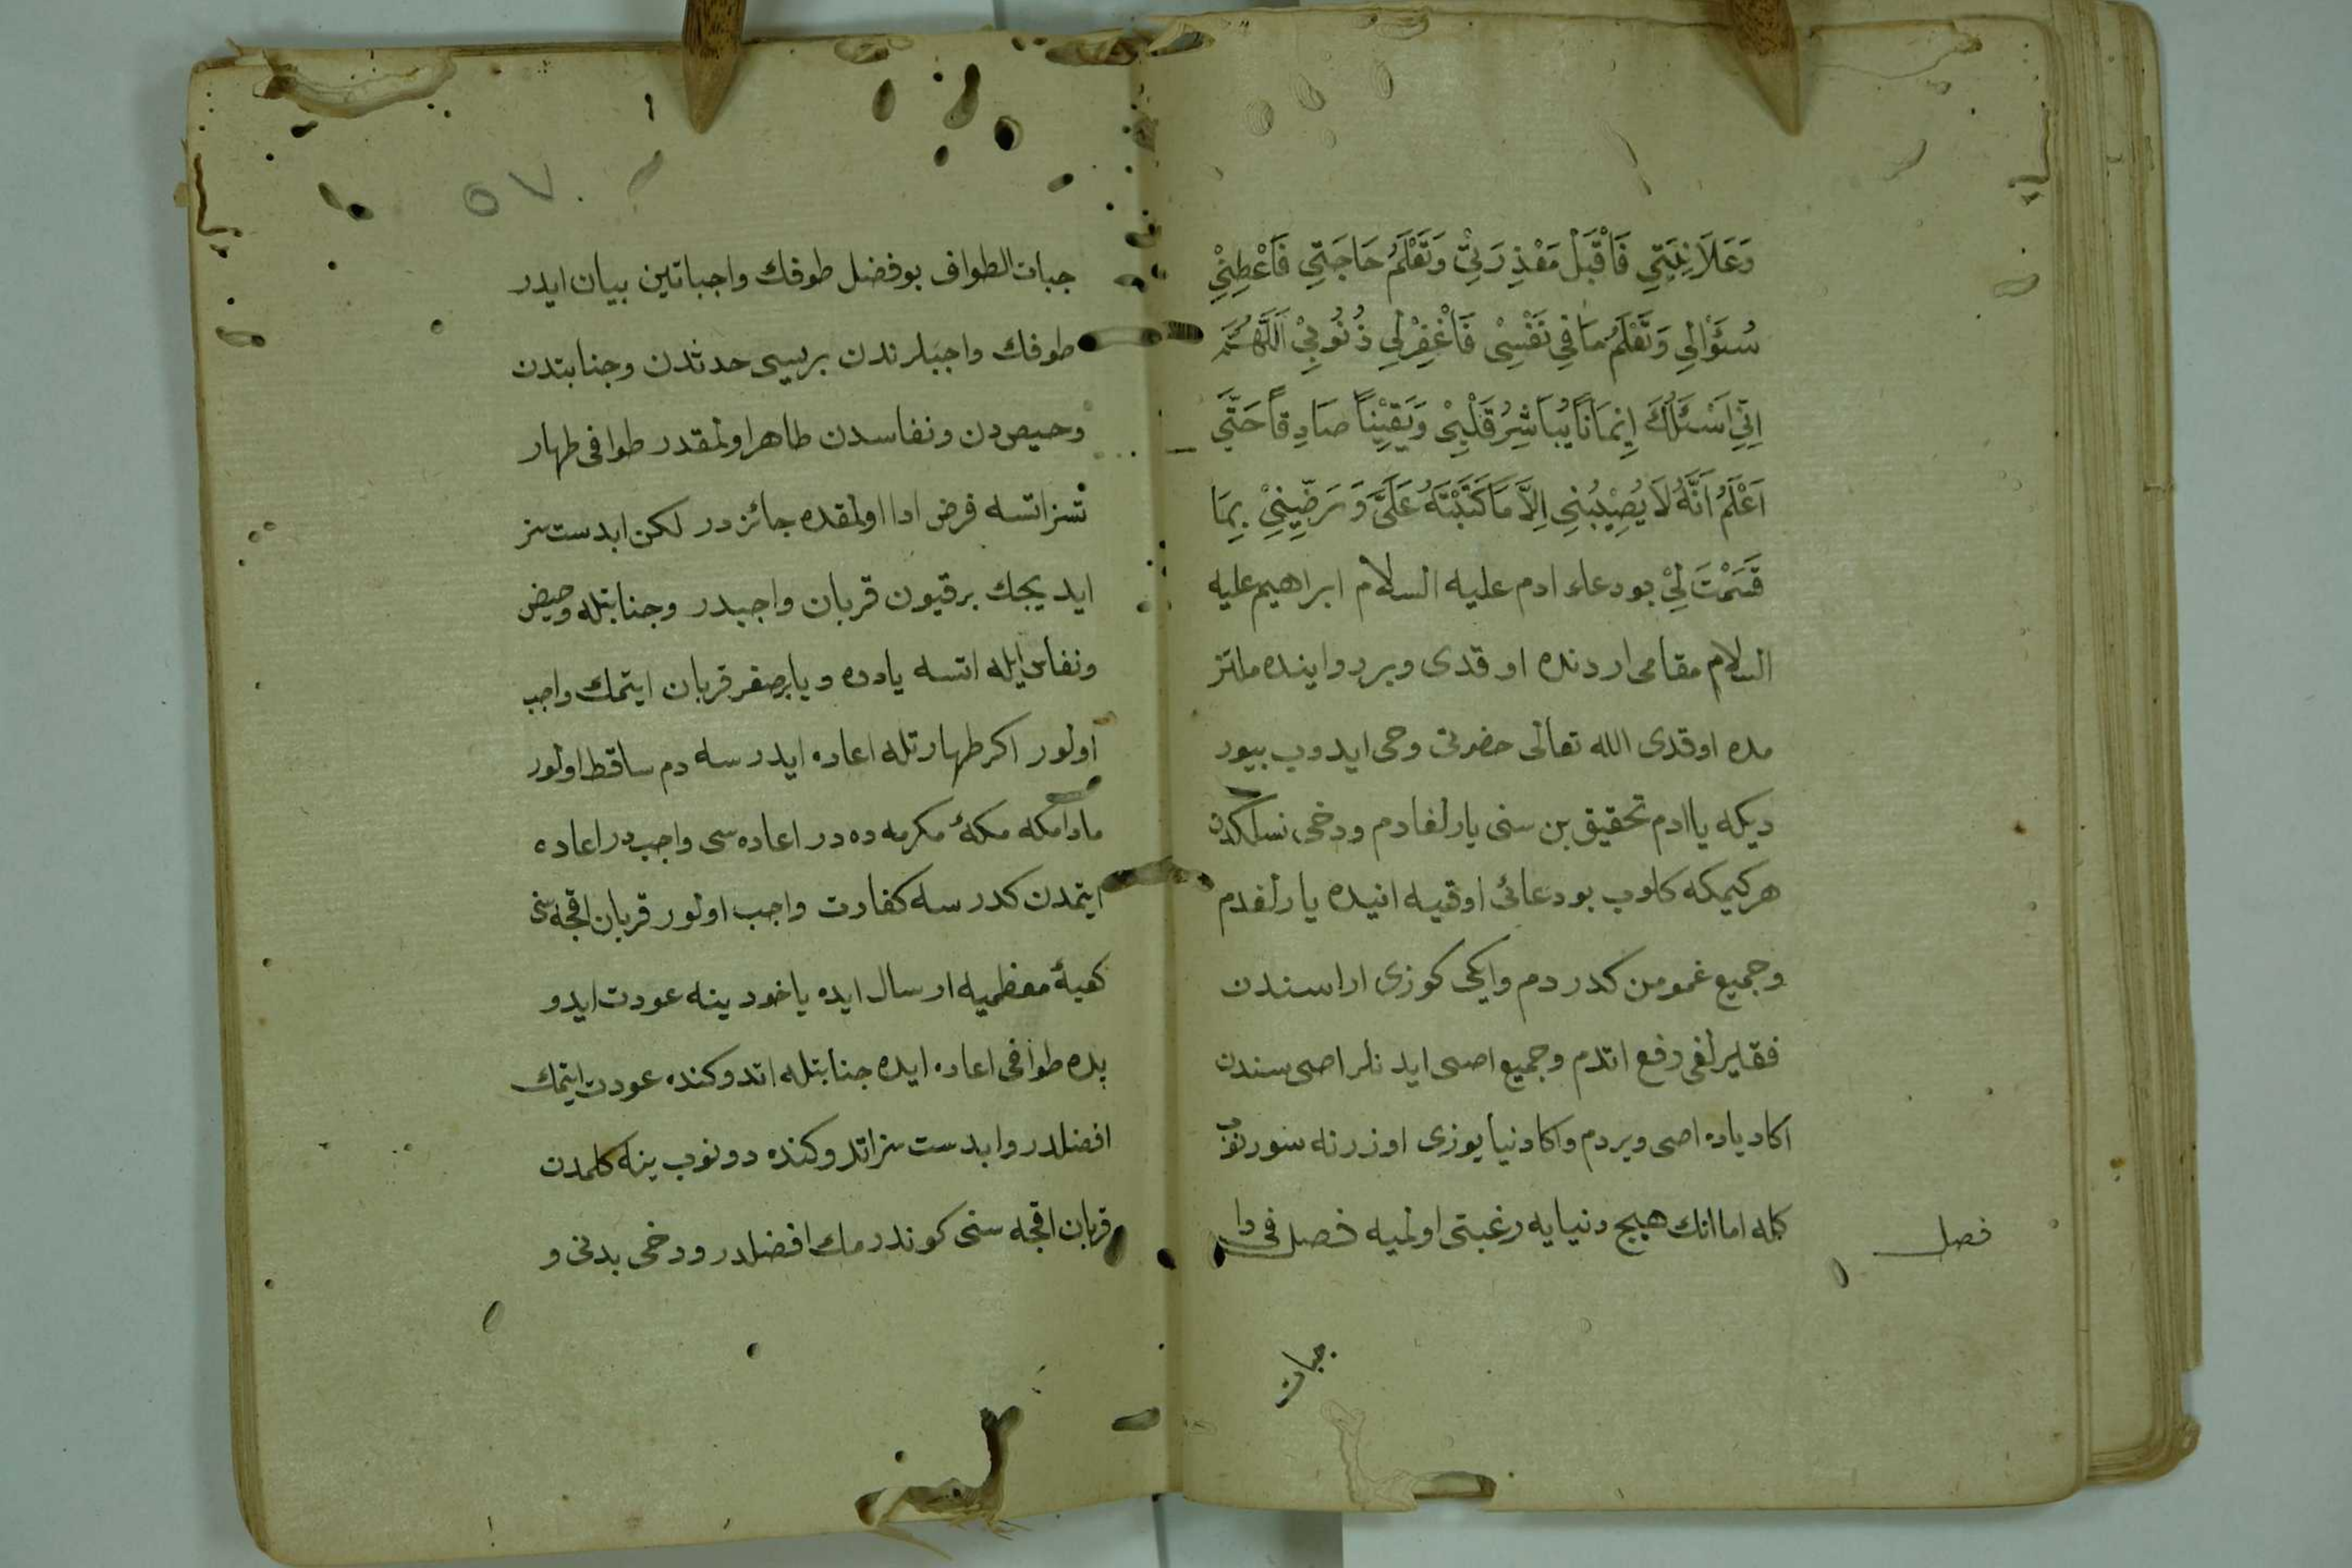 وَعَلَانِيَتِي فَاقْبَلْ مَعْذِرَتِي وَتَعْلَمُ حَاجَتِي فَاَعْطِنِي
سُئَوْالِي وَتَعْلَمُ مَا فِي نَفْسِي فَاغْفِرْلِي ذُنُوبِي اَللّٰهُمَّ
اِنِّي اَسْئَلُكَ اِيمَانًا يُبَاشِرُ قَلْبِي وَيَقِينًا صَادِقًا حَتَّى
اَعْلَمُ اَنَّهُ لَا يُصِيبُنِي اِلَّا مَا كَتَبْتَهُ عَلَيَّ وَرَضِّينِي بِمَا
قَسَمْتَ لِي بو دعاء ادم عليه السلام ابراهيم عليه
السلام مقامى اردنده اوقدى وبر روايتده ملتز
مده اوقدى الله تعالى حضرتى وحى ايدوب بيور
ديكه يا ادم تحقيق بن سنى يارلغادم ودخى نسلكدن
هر كيمكه كلوب بو دعائى اوقيه انيده يارلغدم
وجميع غمومن كدردم وايكى كوزى اراسندن
فقيرلغى رفع اتدم وجميع اصى ايدنلر اصى سندن
اكا دياده اصى ويردم واكا دنيا يوزى اوزرنه سورنوب
كله اما انك هيچ دنيايه رغبتى اولميه فصل فى وا
فصل
جبات
٥٧
جبات الطواف بو فضل طوفك واجباتين بيان ايدر
طوفك واجبلرندن بريسى حدثدن وجنابتدن
وحيصدن ونفاسدن طاهر اولمقدر طوافى طهار
تسز اتسه فرض ادا اولمقده جائزدر لكن ابدست سز
ايديجك بر قيون قربان واجبدر وجنابتله وحيض
ونفاس ايله اتسه يا دوه ويا بر صغر قربان ايتمك واجب
اولور اكر طهارتله اعاده ايدرسه دم ساقط اولور
مادامكه مكهٔ مكرمه ده در اعاده سى واجبدر اعاده
ايتمدن كدرسه كفارت واجب اولور قربان اقچه سنى
كعبهٔ معظميه ارسال ايده ياخود ينه عودت ايدو
بده طوافى اعاده ايده جنابتله اتدوكنده عودت ايتمك
افضلدر وابدست سز اتدوكنده دونوب ينه كلمدن
قربان اقچه سنى كوندرمك افضلدر ودخى بدنى و